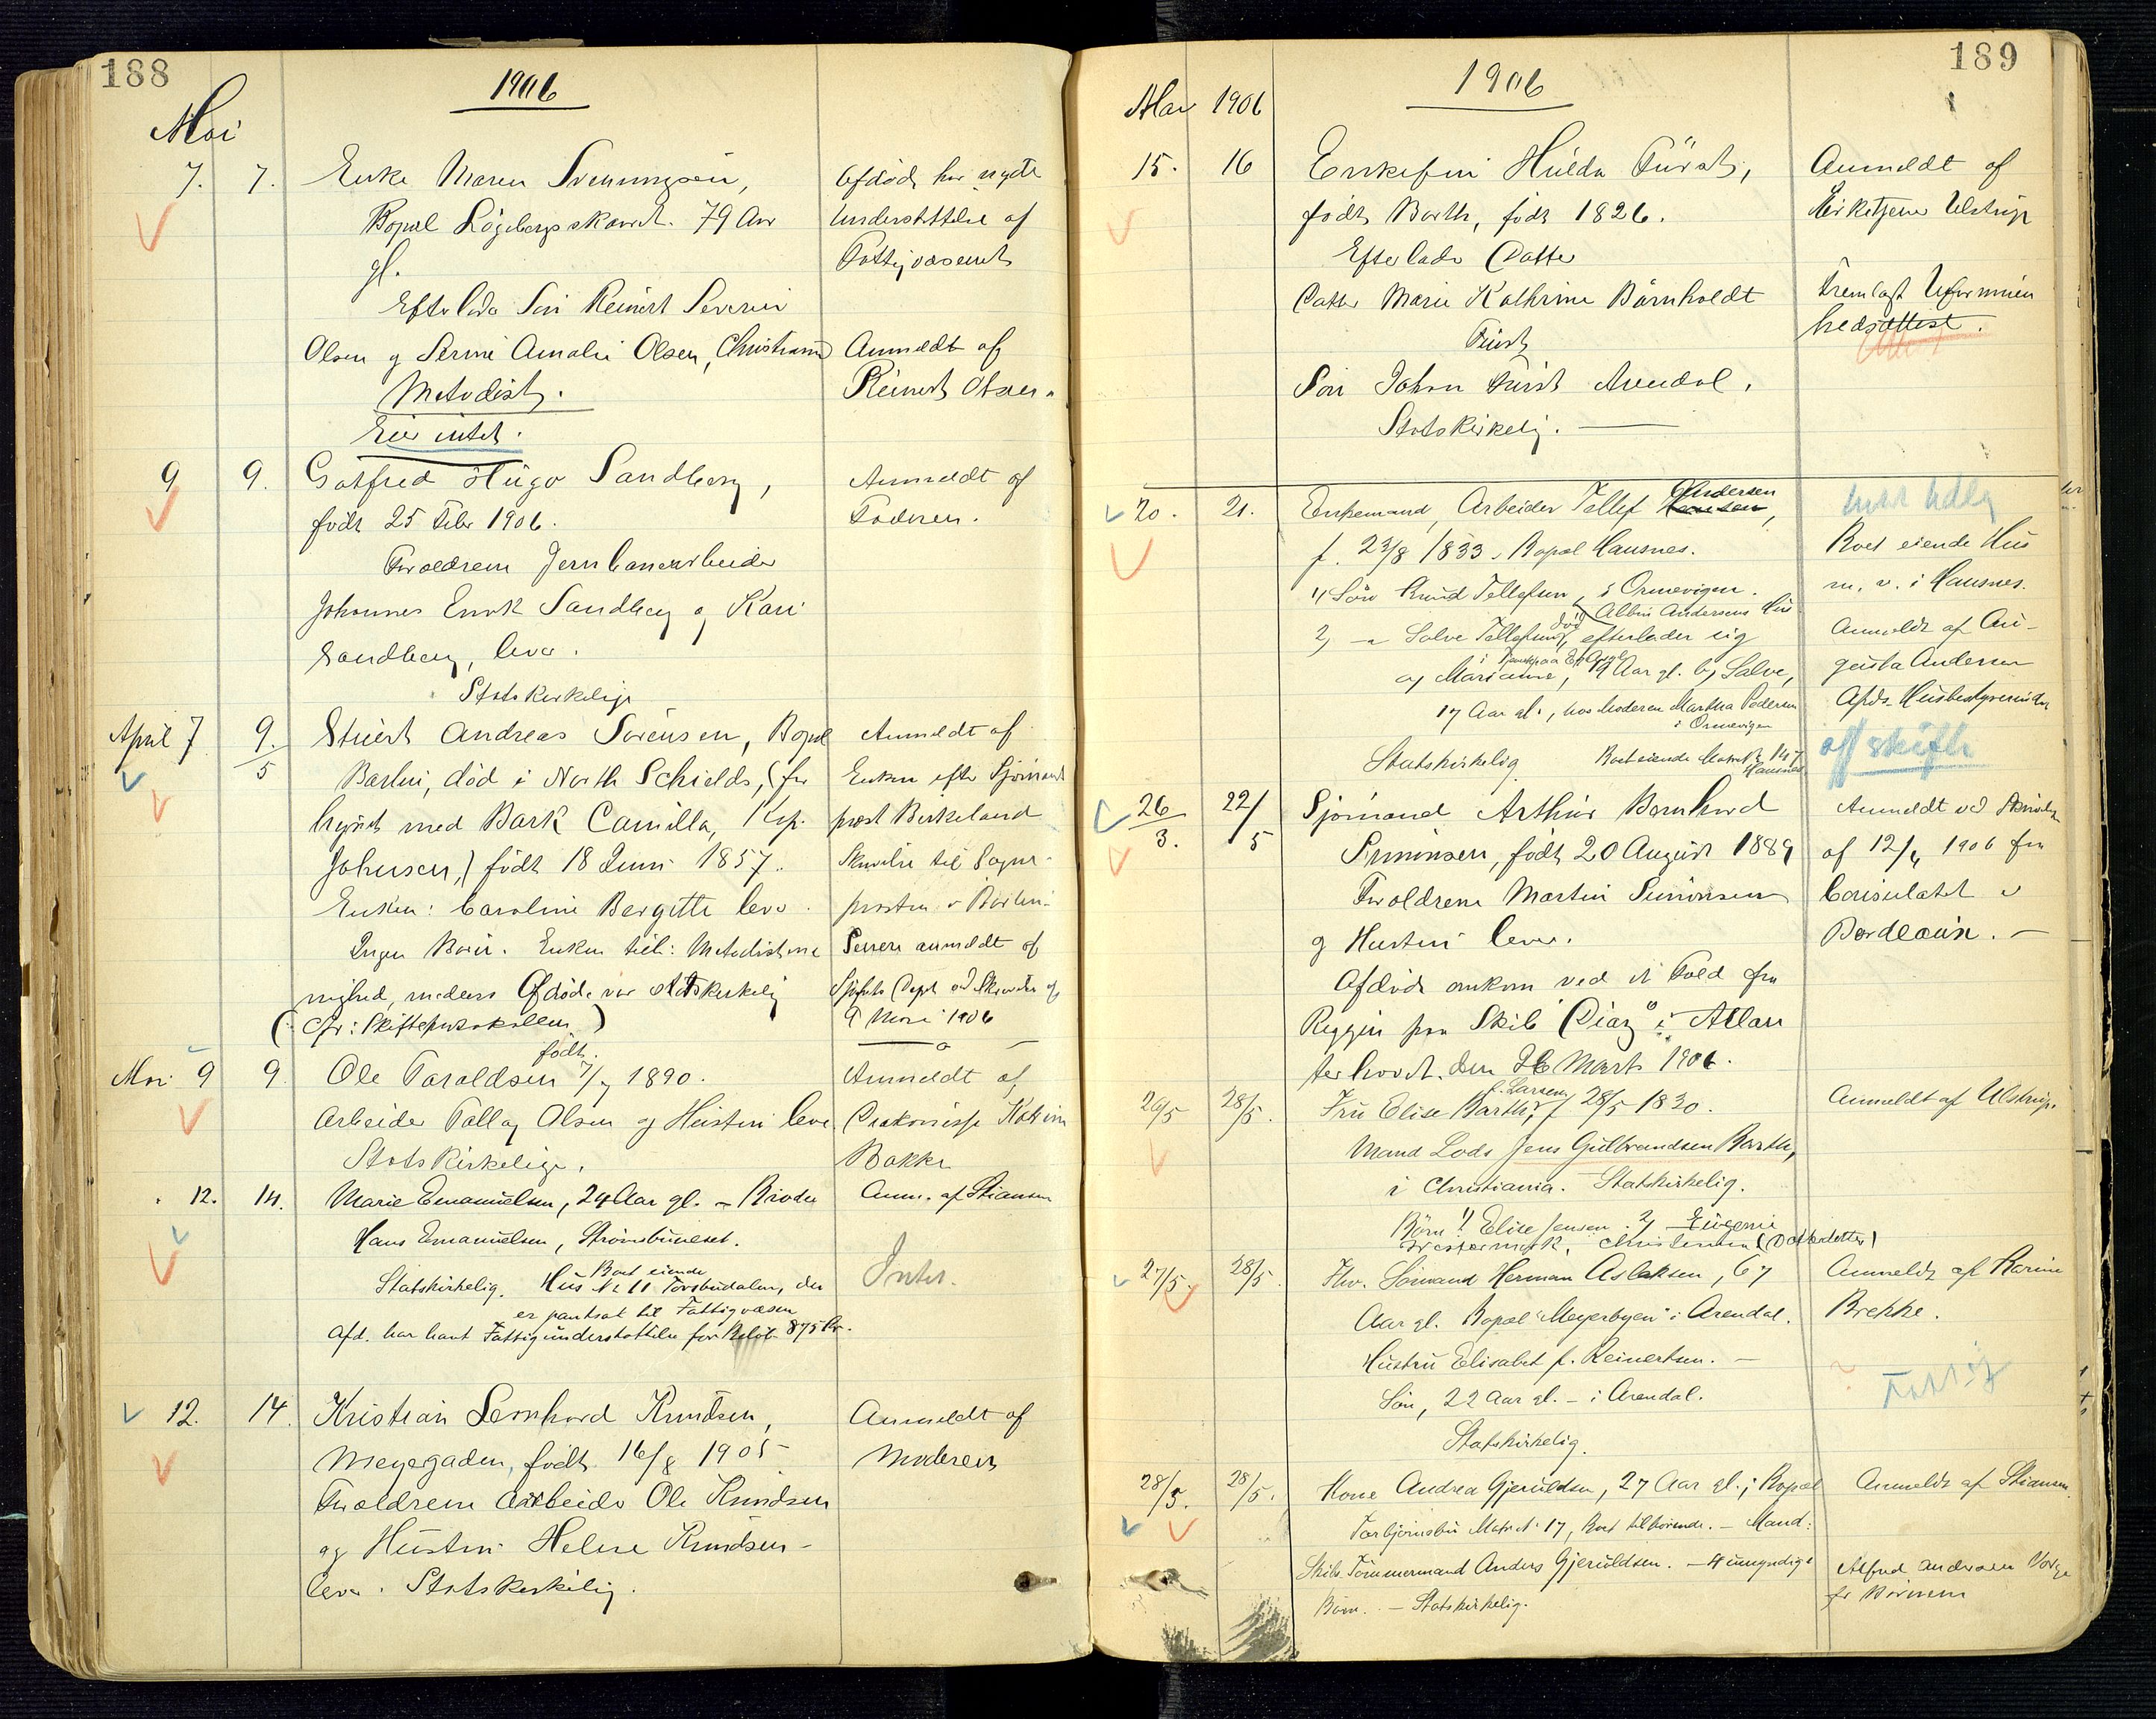 188
1906
Mai
7. 7. Enke Maren Svenningsen, Afdøde har nydt
Bopæl Løgebergskaaret. 79 Aar understøttelse af
gl. Fattigvæsenet
Efterlader Søn Reinert Severin
Olsen og Serine Amalie Olsen, Christiania Anmeldt af
Metodist. Reinert Olsen.
Eier intet.
9 9. Gotfred Hugo Sandberg, Anmeldt af
født 25 Febr 1906. Faderen.
Forældrene Jernbanearbeider
Johannes Enok Sandberg og Kari
Sandberg, lever.
Statskirkelige
April 7 9./5 Stuert Andreas Sørensen, Bopæl Anmeldt af
Barbu, død i North Schields, (for Enken efter Sjømands
hyret med Bark Camilla, Kap. præst Birkeland
Johnsen,) født 18 Juni 1857. Skrivelse til Sogne-
Enken: Caroline Bergitte lever. præsten i Barbu.
Ingen Børn. Enken tilh: Metodistme Senere anmeldt af
nighed, medens Afdøde var statskirkelig Sjøfarts Dept ved Skrivelse af
(Cfr: Skifteprotokollen) 9 Mai 1906
født
Mai 9 9 Ole Taraldsen 7/7 1890. Anmeldt af
Arbeider Tallag Olsen og Hustru lever Diakonisse Katrine
Statskirkelige. Bakke
12. 14. Marie Emanuelsen, 24 Aar gl. - Broder Anm. af Stiansen
Hans Emanuelsen, Strømsbuneset.
Boet eiende
Statskirkelig. Hus № 11 Torsbudalen, der Intet.
er pantsat til Fattigvæsen
Afd. har havt Fattigunderstøttelse for Beløb 875 Kr.
12. 14. Kristian Leonhard Knudsen, Anmeldt af
Meyergaden, født 16/8 1905 Moderen
Forældrene Arbeider Ole Knudsen
og Hustru Helene Knudsen -
lever. Statskirkelig.
189
Mai 1906 1906
15. 16 Enkefru Hulda Fürst, Anmeldt af
født Barth, født 1826. Kirketjener Ulstrup
Efterlader Datter
Datter Marie Kathrine Børnholdt Fremlagt Uformuen
Fürst hedsattest.
Søn Johan Fürst Arendal.
Statskirkelig.
20. 21. Enkemand, Arbeider Tellef Hansen Andersen,
f. 23/8 1833. Bopæl Hausnes. Boet eiende Hus
1) Søn Knud Tellefsen, i Ormevigen. m. v. i Hausnes.
Albin Andersens Hus
2) - " Salve Tellefsen, død efterlader sig Anmeldt af Au-
a) Marianne, 19 Aar gl. b) Salve, gusta Andersen
17 Aar gl., hos Moderen Martha Pedersen Afds. Husbestyrerinde
i Ormevigen
Statskirkelig Boet eiende Matr № 147 off skifte
Hausnes
26/3. 22/5 Sjømand Arthur Bernhard Anmeldt ved Skrivelse
Simonsen, født 20 August 1889 af 12/4 1906 fra
Forældrene Martin Simonsen Consulatet i
og Hustru lever. Bordeaux. -
Afdøde omkom ved et Fald fra
Riggen paa Skib "Diaz" i Atlan
terhavet. den 26 Marts 1906.
f. Larsen
26/5 28/5. Fru Elise Barth, f 28/5 1830. Anmeldt af Ulstrup.
Mand Lods Jens Gulbrandsen Barth,
i Christiania. Statskirkelig.
Børn 1) Elise Jensen. 2) Eugenie
Westermark, Christiania (Datterdatter)
27/5. 28/5. Fhv. Sømand Herman Aslaksen, 67 Anmeldt af Karine
Aar gl. Bopæl "Meyerbyen" i Arendal. Brekke.
Hustru Elisabet f. Reinertsen. -
Søn, 22 Aar gl. - i Arendal. Fattig
Statskirkelig.
28/5. 28/5. Kone Andrea Gjeruldsen, 27 Aar gl.; Bopæl Anmeldt af Stiansen.
Torbjørnsbu Matr № 17, Boet tilhørende. - Mand:
Skibs Tømmermand Anders Gjeruldsen. - 4 umyndige Alfred Andersen Verge
Børn. - Statskirkelig. for Børnene